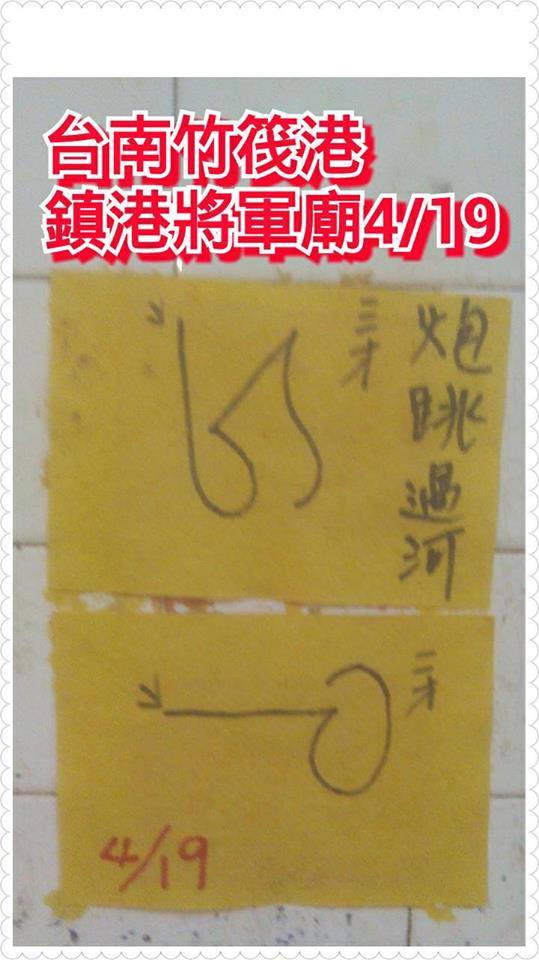 台南竹筏港
鎮港將軍廟4/19
炮跳過河
三才
二才
4/19